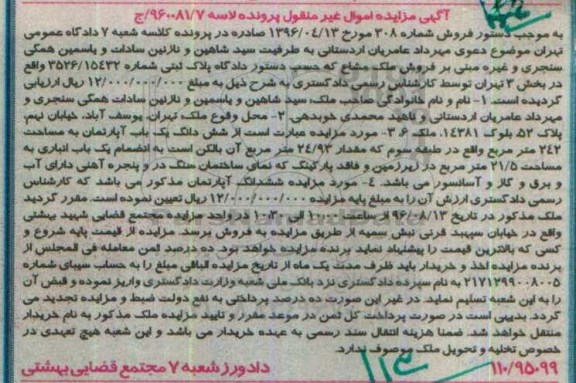 آگهی مزایده اموال غیر منقول پرونده کلاسه ۹۶۰۰۸۱/۷/ج
به موجب دستور فروش شماره ۳۰۸ مورخ ۱۳۹۶/۰۴/۱۳ صادره در پرونده کلاسه شعبه ۷ دادگاه عمومی
تهران موضوع دعوی مهرداد عامریان اردستانی به طرفیت سید شاهین و نازنین سادات و یاسمین همگی
سنجری و غیره مبنی بر فروش ملک مشاع که حسب دستور دادگاه پلاک ثبتی شماره ۳۵۲۶/۱۵۴۳۲ واقع
در بخش ۳ تهران توسط کارشناس رسمی دادگستری به شرح ذیل به مبلغ ۱۲/۰۰۰/۰۰۰/۰۰۰ ریال ارزیابی
گردیده است. ۱- نام و نام خانوادگی صاحب ملک: سید شاهین و یاسمین و نازنین سادات همگی سنجری و
مهرداد عامریان اردستانی و ناهید محمدی خوبدهی. ۲- محل وقوع ملک: تهران، یوسف آباد، خیابان نهم،
پلاک ۵۲ بلوک ۱۴۳۸۱. ملک ۳.۶- مورد مزایده عبارت است از شش دانگ یک باب آپارتمان به مساحت
۲۴۲ متر مربع واقع در طبقه سوم که مقدار ۲۴/۹۳ متر مربع آن بالکن است به انضمام یک باب انباری به
مساحت ۲۱/۵ متر مربع در زیرزمین و فاقد پارکینگ که نمای ساختمان سنگ در و پنجره آهنی دارای آب
و برق و گاز و آسانسور می باشد. ۴- مورد مزایده ششدانگ آپارتمان مذکور می باشد که کارشناس
رسمی دادگستری ارزش آن را به مبلغ پایه مزایده ۱۲/۰۰۰/۰۰۰/۰۰۰ ریال تعیین نموده است. مقرر گردید
ملک مذکور در تاریخ ۹۶/۰۸/۱۳ از ساعت ۱۰ الی ۱۰:۳۰ در واحد مزایده مجتمع قضایی شهید بهشتی
واقع در خیابان سپهبد قرنی نبش سمیه از طریق مزایده به فروش برسد. مزایده از قیمت پایه شروع و
کسی که بالاترین قیمت را پیشنهاد نماید برنده مزایده خواهد بود. ده درصد ثمن معامله فی المجلس از
برنده مزایده اخذ و خریدار باید ظرف مدت یک ماه از تاریخ مزایده الباقی مبلغ را به حساب سیبای شماره
۲۱۷۱۲۹۹۰۰۸۰۰۵ به نام سپرده دادگستری نزد بانک ملی شعبه وزارت دادگستری واریز نموده و قبض آن
را به این شعبه تسلیم نماید. در غیر این صورت ده درصد پرداختی به نفع دولت ضبط و مزایده تجدید می
گردد. بدیهی است در صورت پرداخت کل ثمن در موعد مقرر و تایید مزایده ملک مذکور به نام خریدار
منتقل خواهد شد. ضمنا هزینه انتقال سند رسمی به عهده خریدار می باشد و این شعبه هیچ تعهدی در
خصوص تخلیه و تحویل ملک موصوف ندارد.
۱۱۰/۹۵۰۹۹ دادورز شعبه ۷ مجتمع قضایی بهشتی